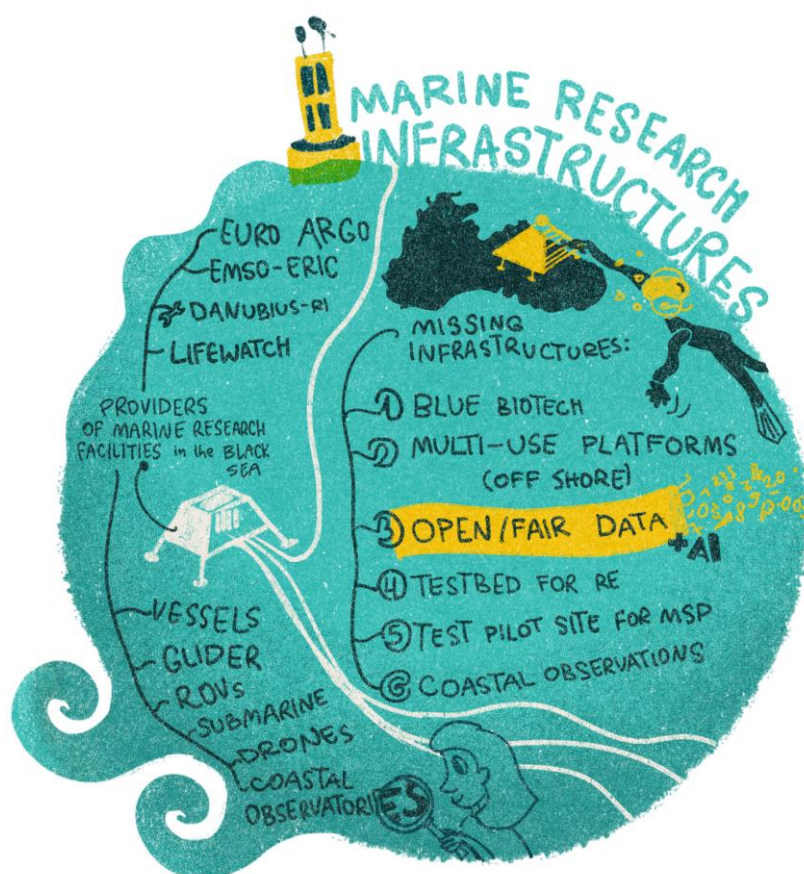 MARINE RESEARCH
INFRASTRUCTURES
EURO ARGO
EMSO-ERIC
DANUBIUS-RI
LIFEWATCH
PROVIDERS
OF MARINE RESEARCH
FACILITIES in the BLACK
SEA
VESSELS
GLIDER
ROVs
SUBMARINE
DRONES
COASTAL
OBSERVATORIES
MISSING
INFRASTRUCTURES:
1 BLUE BIOTECH
2 MULTI-USE PLATFORMS
(OFF SHORE)
3 OPEN/FAIR DATA
+AI
4 TESTBED FOR RE
5 TEST PILOT SITE FOR MSP
6 COASTAL OBSERVATIONS